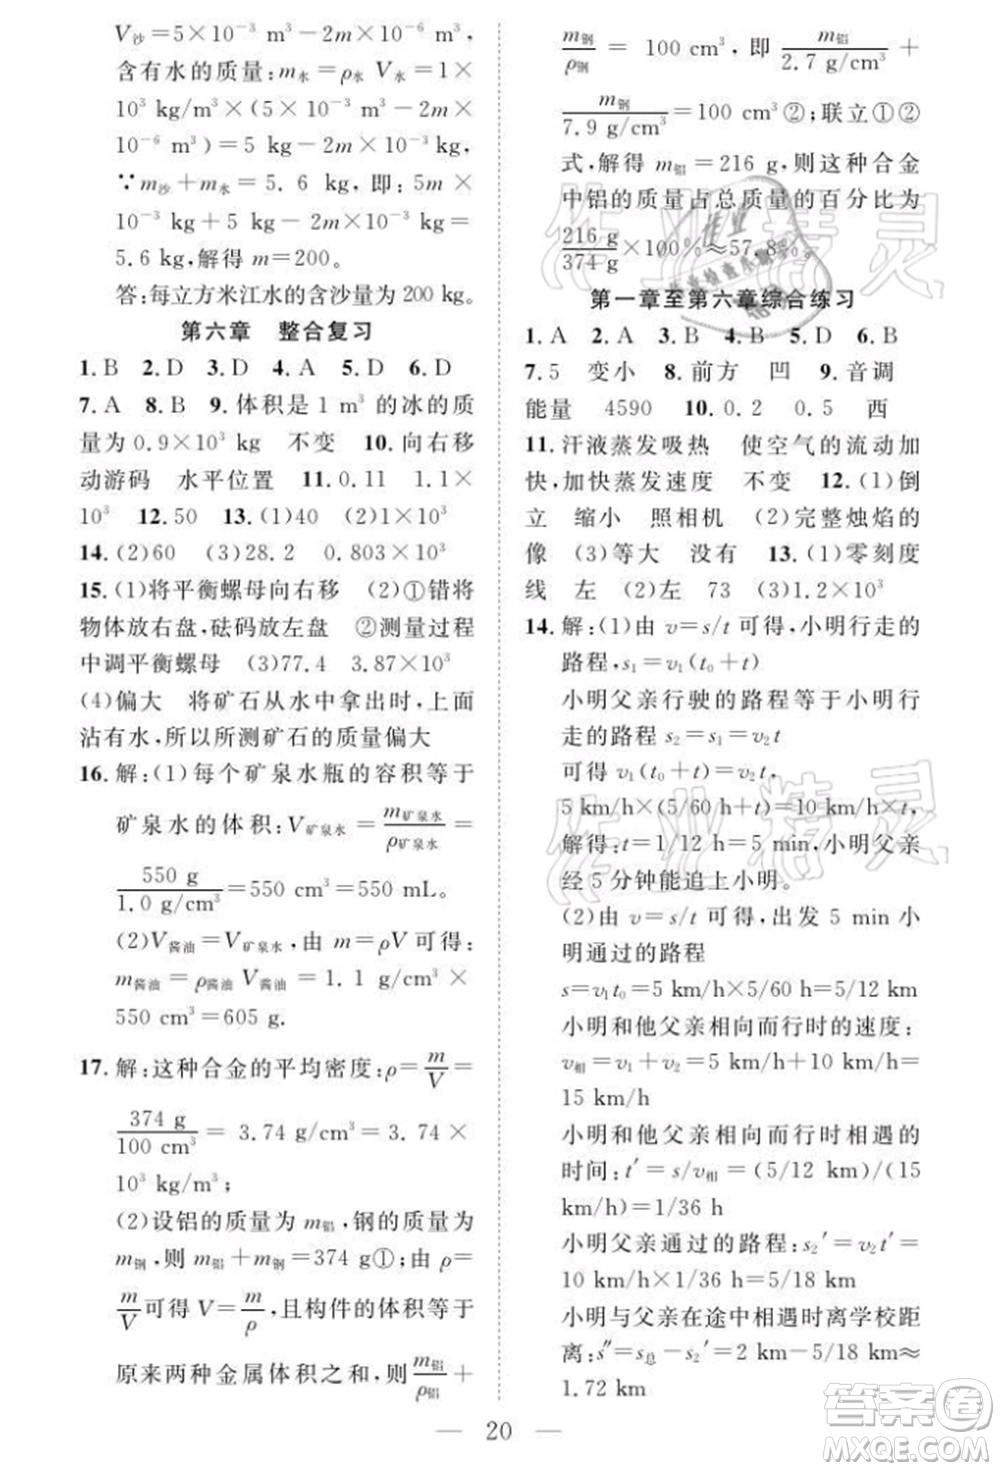 V沙=5×10⁻³ m³-2m×10⁻⁶ m³,
含有水的质量:m水=ρ水 V水=1×
10³ kg/m³×(5×10⁻³ m³-2m×
10⁻⁶ m³)=5 kg-2m×10⁻³ kg,
∵m沙+m水=5.6 kg,即:5m×
10⁻³ kg+5 kg-2m×10⁻³ kg=
5.6 kg,解得 m=200。
答:每立方米江水的含沙量为 200 kg。
第六章 整合复习
1.B 2.D 3.D 4.A 5.D 6.D
7.A 8.B 9.体积是 1 m³ 的冰的质
量为 0.9×10³ kg 不变 10.向右移
动游码 水平位置 11.0.11 1.1×
10³ 12.50 13.(1)40 (2)1×10³
14.(2)60 (3)28.2 0.803×10³
15.(1)将平衡螺母向右移 (2)①错将
物体放右盘,砝码放左盘 ②测量过程
中调平衡螺母 (3)77.4 3.87×10³
(4)偏大 将矿石从水中拿出时,上面
沾有水,所以所测矿石的质量偏大
16.解:(1)每个矿泉水瓶的容积等于
矿泉水的体积:V矿泉水=m矿泉水/ρ矿泉水=
550 g/1.0 g/cm³=550 cm³=550 mL。
(2)V酱油=V矿泉水,由 m=ρV 可得:
m酱油=ρ酱油 V酱油=1.1 g/cm³×
550 cm³=605 g.
17.解:这种合金的平均密度:ρ=m/V=
374 g/100 cm³=3.74 g/cm³=3.74×
10³ kg/m³;
(2)设铝的质量为 m铝,钢的质量为
m钢,则 m铝+m钢=374 g①;由 ρ=
m/V可得 V=m/ρ,且构件的体积等于
原来两种金属体积之和,则m铝/ρ铝+
m钢/ρ钢=100 cm³,即 m铝/2.7 g/cm³+
m钢/7.9 g/cm³=100 cm³②;联立①②
式,解得 m铝=216 g,则这种合金
中铝的质量占总质量的百分比为
216 g/374 g×100%≈57.8%。
第一章至第六章综合练习
1.A 2.A 3.B 4.B 5.D 6.B
7.5 变小 8.前方 凹 9.音调
能量 4590 10.0.2 0.5 西
11.汗液蒸发吸热 使空气的流动加
快,加快蒸发速度 不变 12.(1)倒
立 缩小 照相机 (2)完整烛焰的
像 (3)等大 没有 13.(1)零刻度
线 左 (2)左 73 (3)1.2×10³
14.解:(1)由 v=s/t 可得,小明行走的
路程,s₁=v₁(t₀+t)
小明父亲行驶的路程等于小明行
走的路程 s₂=s₁=v₂t
可得 v₁(t₀+t)=v₂t,
5 km/h×(5/60 h+t)=10 km/h×t,
解得:t=1/12 h=5 min,小明父亲
经 5 分钟能追上小明。
(2)由 v=s/t 可得,出发 5 min 小
明通过的路程
s=v₁t₀=5 km/h×5/60 h=5/12 km
小明和他父亲相向而行时的速度:
v相=v₁+v₂=5 km/h+10 km/h=
15 km/h
小明和他父亲相向而行时相遇的
时间:t′=s/v相=(5/12 km)/(15
km/h)=1/36 h
小明父亲通过的路程:s₂′=v₂t′=
10 km/h×1/36 h=5/18 km
小明与父亲在途中相遇时离学校距
离:s″=s总-s₂′=2 km-5/18 km≈
1.72 km
— 20 —
作业精灵
作业精灵
答案圈
MXQE.COM